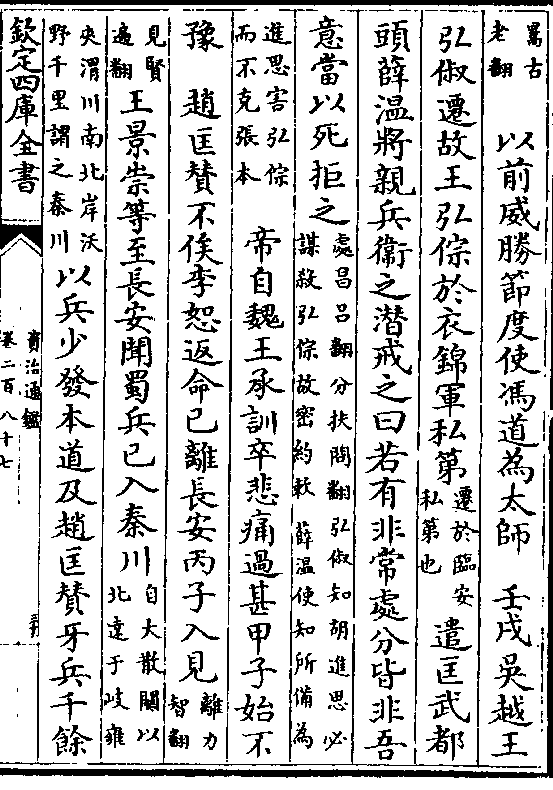 暠古
老翻
以前威勝節度使馮道為太師　壬戌吳越王
弘俶遷故王弘倧於衣錦軍私第
遷於臨安
私第也
遣匡武都
頭薛温將親兵衛之潜戒之曰若有非常處分皆非吾
意當以死拒之
處昌吕翻分扶問翻弘俶知胡進思必
謀殺弘倧故密約敕薛温使知所備為
進思害弘倧
而不克張本
帝自魏王承訓卒悲痛過甚甲子始不
豫　趙匡賛不俟李恕返命已離長安丙子入見
離力
智翻
見賢
遍翻
王景崇等至長安聞蜀兵已入秦川
自大散關以
北達于岐雍
夾渭川南北岸沃
野千里謂之秦川
以兵少發本道及趙匡賛牙兵千餘
欽定四庫全書
資治通鑑
卷二百八十七